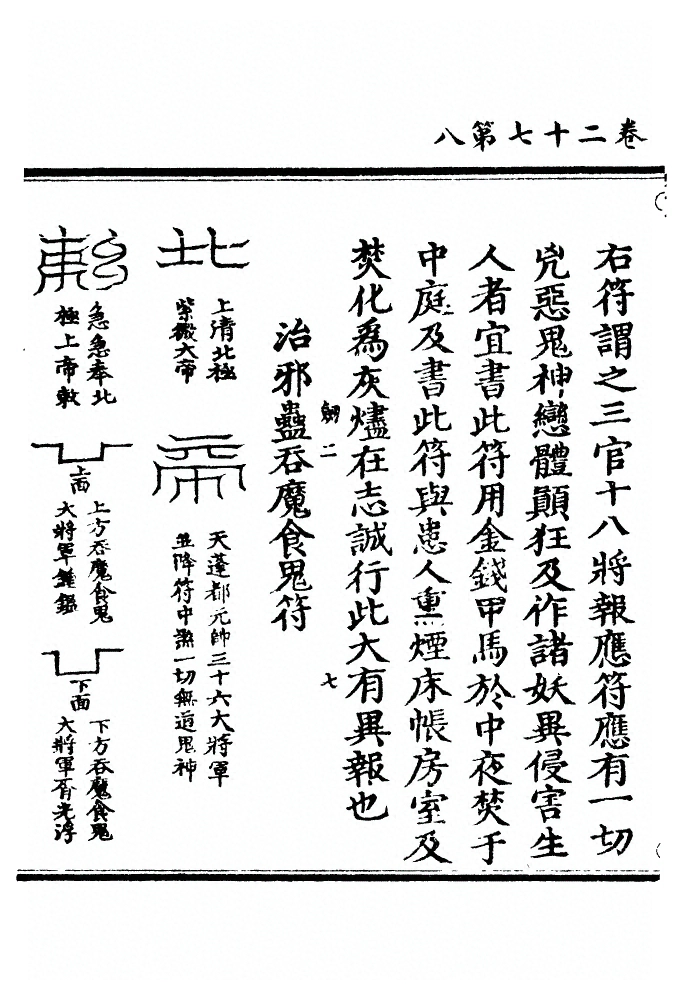 卷二十七第八
右符謂之三官十八將報應符應有一切
兇惡鬼神戀體顛狂及作諸妖異侵害生
人者宜書此符用金錢甲馬於中夜焚于
中庭及書此符與患人熏煙床帳房室及
焚化為灰燼在志誠行此大有異報也
二
七
治邪蠱吞魔食鬼符
北
上清北極
紫微大帝
帝
天蓬都元帥三十六大將軍
並降符中無一切無道鬼神
勑
急急奉北
極上帝敕
上面
上方吞魔食鬼
大將軍鍾
下面
下方吞魔食鬼
大將軍光浮